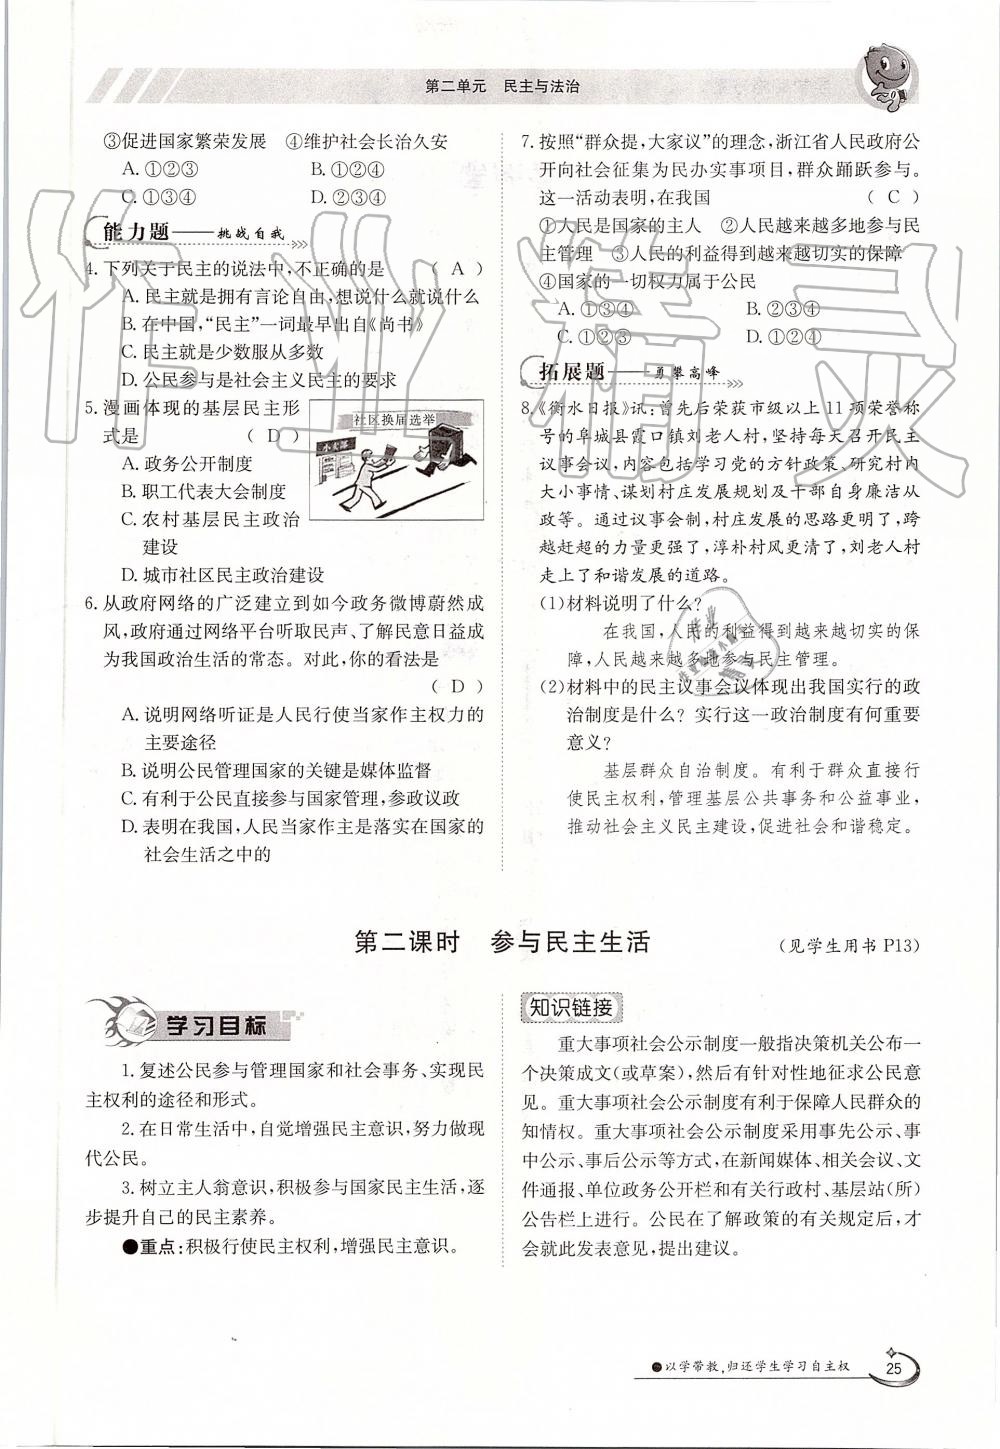 第二单元 民主与法治
③促进国家繁荣发展 ④维护社会长治久安
A. ①②③ B. ①②④
C. ①③④ D. ②③④
能力题——挑战自我
4. 下列关于民主的说法中,不正确的是 ( A )
A. 民主就是拥有言论自由,想说什么就说什么
B. 在中国,“民主”一词最早出自《尚书》
C. 民主就是少数服从多数
D. 公民参与是社会主义民主的要求
5. 漫画体现的基层民主形
式是 ( D )
A. 政务公开制度
B. 职工代表大会制度
C. 农村基层民主政治
建设
D. 城市社区民主政治建设
社区换届选举
6. 从政府网络的广泛建立到如今政务微博蔚然成
风,政府通过网络平台听取民声、了解民意日益成
为我国政治生活的常态。对此,你的看法是
( D )
A. 说明网络听证是人民行使当家作主权力的
主要途径
B. 说明公民管理国家的关键是媒体监督
C. 有利于公民直接参与国家管理,参政议政
D. 表明在我国,人民当家作主是落实在国家的
社会生活之中的
7. 按照“群众提,大家议”的理念,浙江省人民政府公
开向社会征集为民办实事项目,群众踊跃参与。
这一活动表明,在我国 ( C )
①大民是国家的主人 ②人民越来越多地参与民
主管理 ③人民的利益得到越来越切实的保障
④国家的一切权力属于公民
A. ①③④ B. ②③④
C. ①②③ D. ①②④
拓展题——勇攀高峰
8. 《衡水日报》讯:曾先后荣获市级以上11项荣誉称
号的阜城县霞口镇刘老人村,坚持每天召开民主
议事会议,内容包括学习党的方针政策、研究村内
大小事情、谋划村庄发展规划及干部自身廉洁从
政等。通过议事会制,村庄发展的思路更明了,跨
越赶超的力量更强了,淳朴村风更清了,刘老人村
走上了和谐发展的道路。
(1)材料说明了什么?
在我国,人民的利益得到越来越切实的保
障,人民越来越多地参与民主管理。
(2)材料中的民主议事会议体现出我国实行的政
治制度是什么?实行这一政治制度有何重要
意义?
基层群众自治制度。有利于群众直接行
使民主权利,管理基层公共事务和公益事业,
推动社会主义民主建设,促进社会和谐稳定。
第二课时 参与民主生活 (见学生用书 P13)
学习目标
1. 复述公民参与管理国家和社会事务、实现民
主权利的途径和形式。
2. 在日常生活中,自觉增强民主意识,努力做现
代公民。
3. 树立主人翁意识,积极参与国家民主生活,逐
步提升自己的民主素养。
●重点:积极行使民主权利,增强民主意识。
知识链接
重大事项社会公示制度一般指决策机关公布一
个决策成文(或草案),然后有针对性地征求公民意
见。重大事项社会公示制度有利于保障人民群众的
知情权。重大事项社会公示制度采用事先公示、事
中公示、事后公示等方式,在新闻媒体、相关会议、文
件通报、单位政务公开栏和有关行政村、基层站(所)
公告栏上进行。公民在了解政策的有关规定后,才
会就此发表意见,提出建议。
●以学带教,归还学生学习自主权
25
作业精灵